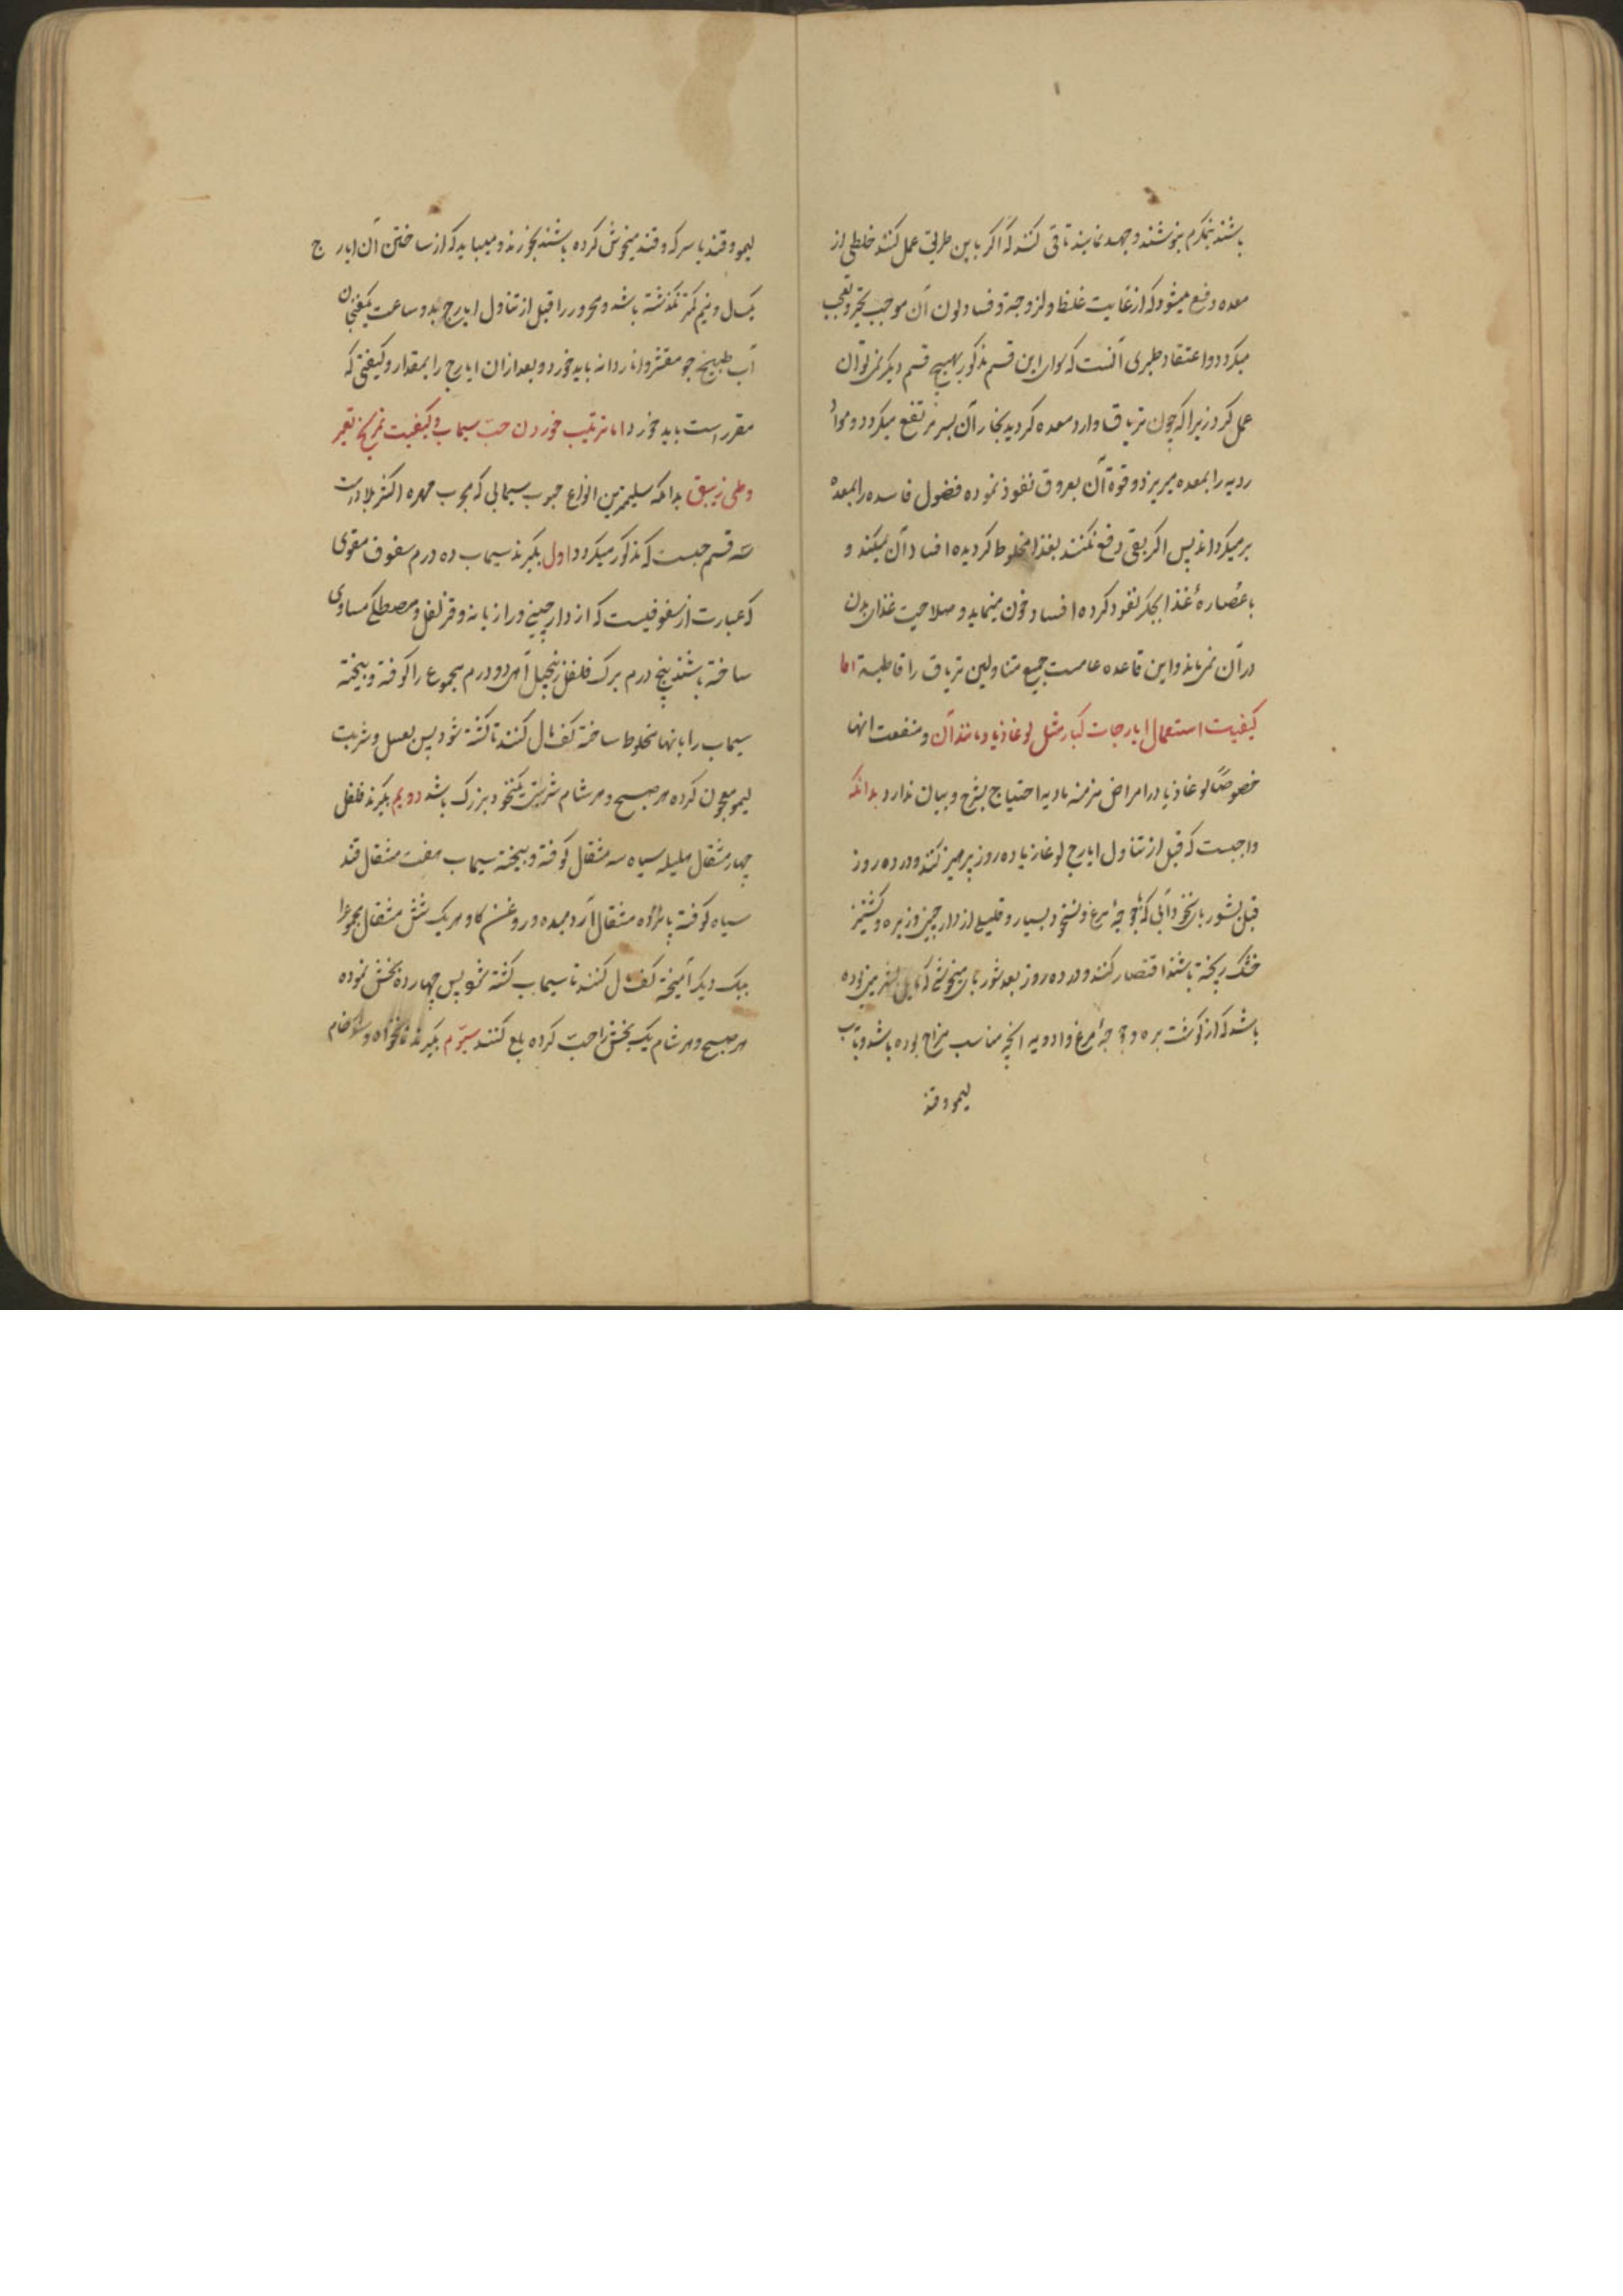 باشند نیمگرم بنوشند و جهد نمایند تا قی کنند که اکر باین طریق عمل کنند خلطی از
معده دفع میشود که از غایت غلظ و لزوجة و فساد لون آن موجب تحیر و تعجب
میکردد و اعتقاد طبری آنست که سوای این قسم مذکور بهیچ قسم دیکر نمی توان
عمل کرد زیرا که چون تریاق وارد معده کردید بخار آن بسر مرتفع میکردد و مواد
ردیه را بمعده میریزد و قوة آن بعروق نفوذ نموده فضول فاسده را بمعده
برمیکرداند پس اکر بقی دفع نکنند بغذا مخلوط کردیده افساد آن میکند و
با عصارهٔ غذا بجکر نفوذ کرده افساد خون مینماید و صلاحیت غذای بدن
در آن نمی ماند و این قاعده عامست جمیع متناولین تریاق را قاطبة اما
کیفیت استعمال ایارجات کبار مثل لوغاذیا و مانند آن و منفعت انها
خصوصاً لوغاذیا در امراض مزمنه بادیه احتیاج بشرح و بیان ندارد بدانکه
واجبست که قبل از تناول ایارج لوغازیا ده روز پرهیز کنند و در ده روز
قبل بشوربای نخودآبی که بجوجهٔ مرغ و نخود بسیار و قلیلی از دارچینی و زیره و کشنیز
خشک پخته باشند اقتصار کنند و در ده روز بعد شوربای میخوشی که مایل بشیرینی بوده
باشد که از کوشت بره و جوجهٔ مرغ و ادویه انچه مناسب مزاج بوده باشد و بآب
لیمو و قند
لیمو و قند یا سرکه و قند میخوش کرده باشند بخورند و میباید که از ساختن آن ایارج
یکسال و نیم کمتر نکذشته باشد و محرور را قبل از تناول ایارج بدو ساعت یکفنجان
آب طبیخ جو مقشر و انار دانه باید خورد و بعد از ان ایارج را بمقدار و کیفیتی که
مقرر است باید خورد اما ترتیب خوردن حبّ سیماب و کیفیت تمریخ تعیر
و طلی زیبق بدانکه سلیمترین انواع حبوب سیمابی که مجرب مهره اکثر بلادست
سه قسم حبست که مذکور میکردد اول بکیرند سیماب ده درم سفوف مقوی
که عبارت از سفوفیست که از دارچینی و رازیانه و قرنفل و مصطکی مساوی
ساخته باشند پنج درم برک فلفل زنجبیل از هر دو درم مجموع را کوفته و بیخته
سیماب را بانها مخلوط ساخته کف مال کنند تا کشته شود پس بعسل و شربت
لیمو معجون کرده هر صبح و هر شام شربت یکنخود بزرک باشد دویم بکیرند فلفل
چهار مثقال هلیله سیاه سه مثقال کوفته و بیخته سیماب هفت مثقال قند
سیاه کوفته پانزده مثقال آرد میده و روغن کاو هر یک شش مثقال مجموعرا
بیک دیکر آمیخته کف مال کنند تا سیماب کشته شود پس چهارده بخش نموده
هر صبح و هر شام یک بخش را حبّ کرده بلع کنند سیّوم بکیرند نانخواه و خام